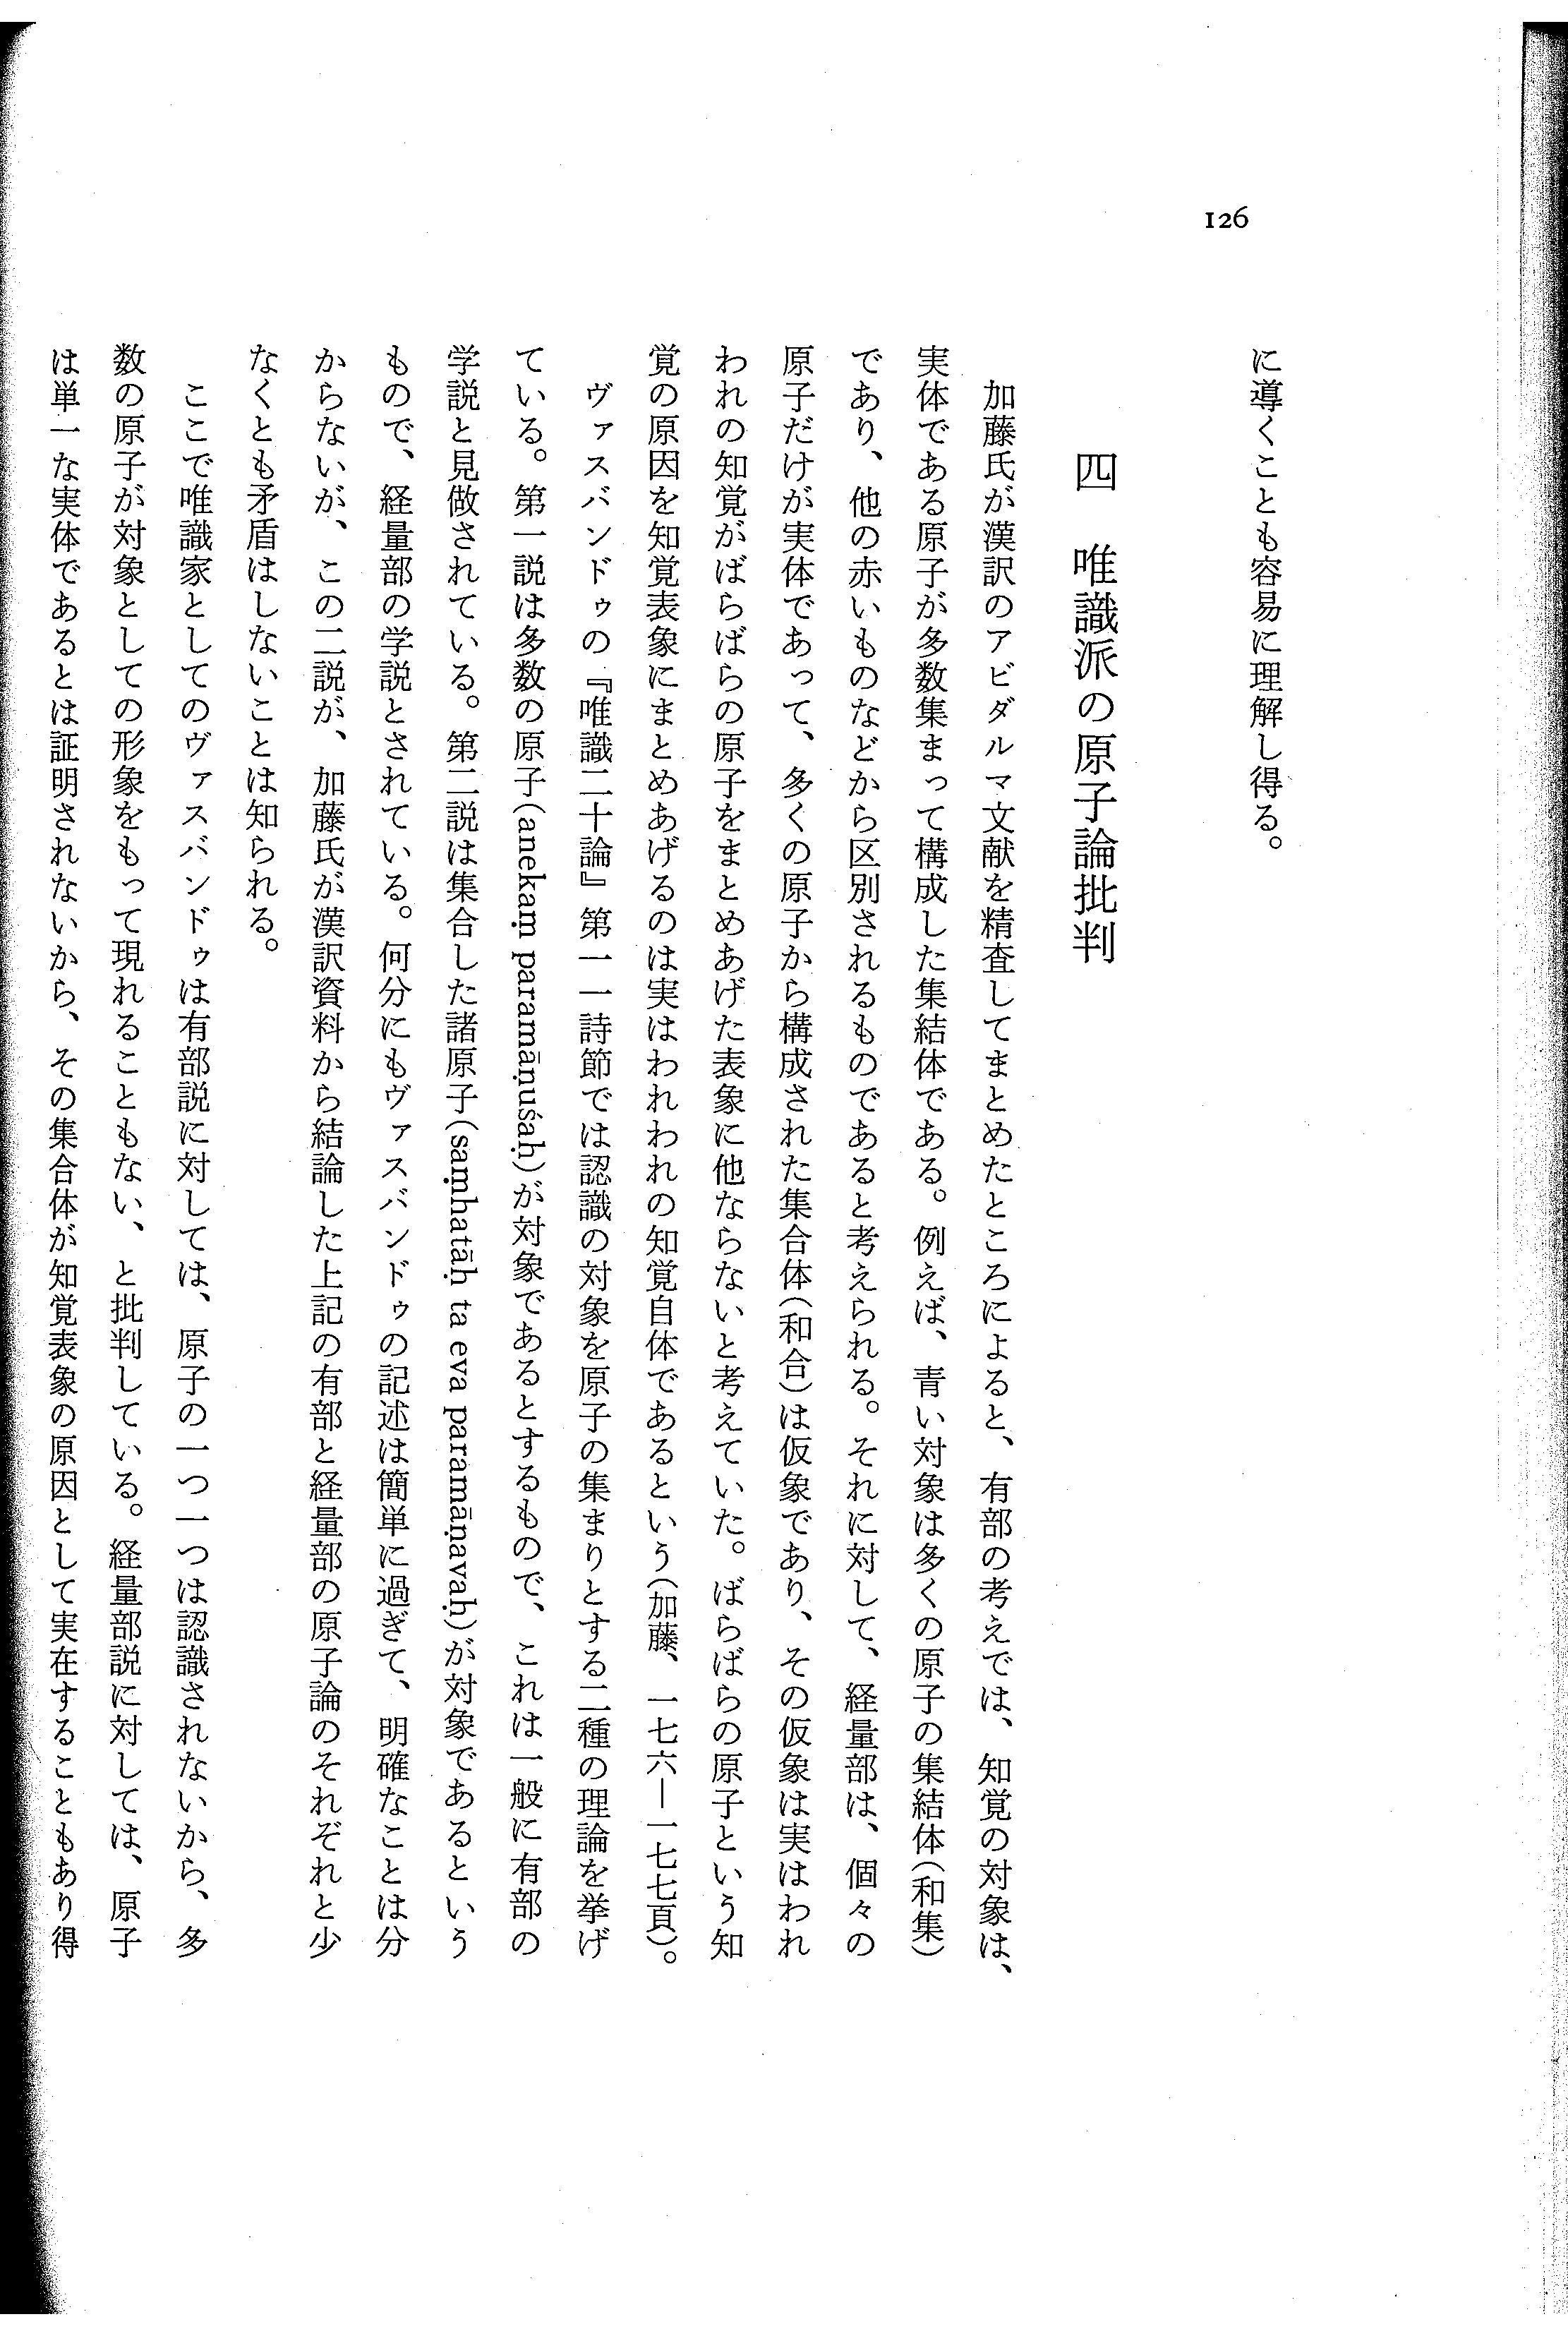 126
に導くことも容易に理解し得る。
四　唯識派の原子論批判
加藤氏が漢訳のアビダルマ文献を精査してまとめたところによると、有部の考えでは、知覚の対象は、
実体である原子が多数集まって構成した集結体である。例えば、青い対象は多くの原子の集結体（和集）
であり、他の赤いものなどから区別されるものであると考えられる。それに対して、経量部は、個々の
原子だけが実体であって、多くの原子から構成された集合体（和合）は仮象であり、その仮象は実はわれ
われの知覚がばらばらの原子をまとめあげた表象に他ならないと考えていた。ばらばらの原子という知
覚の原因を知覚表象にまとめあげるのは実はわれわれの知覚自体であるという（加藤、一七六―一七七頁）。
ヴァスバンドゥの『唯識二十論』第一一詩節では認識の対象を原子の集まりとする二種の理論を挙げ
ている。第一説は多数の原子（anekaṃ paramāṇuśaḥ）が対象であるとするもので、これは一般に有部の
学説と見做されている。第二説は集合した諸原子（saṃhatāḥ ta eva paramāṇavaḥ）が対象であるという
もので、経量部の学説とされている。何分にもヴァスバンドゥの記述は簡単に過ぎて、明確なことは分
からないが、この二説が、加藤氏が漢訳資料から結論した上記の有部と経量部の原子論のそれぞれと少
なくとも矛盾はしないことは知られる。
ここで唯識家としてのヴァスバンドゥは有部説に対しては、原子の一つ一つは認識されないから、多
数の原子が対象としての形象をもって現れることもない、と批判している。経量部説に対しては、原子
は単一な実体であるとは証明されないから、その集合体が知覚表象の原因として実在することもあり得